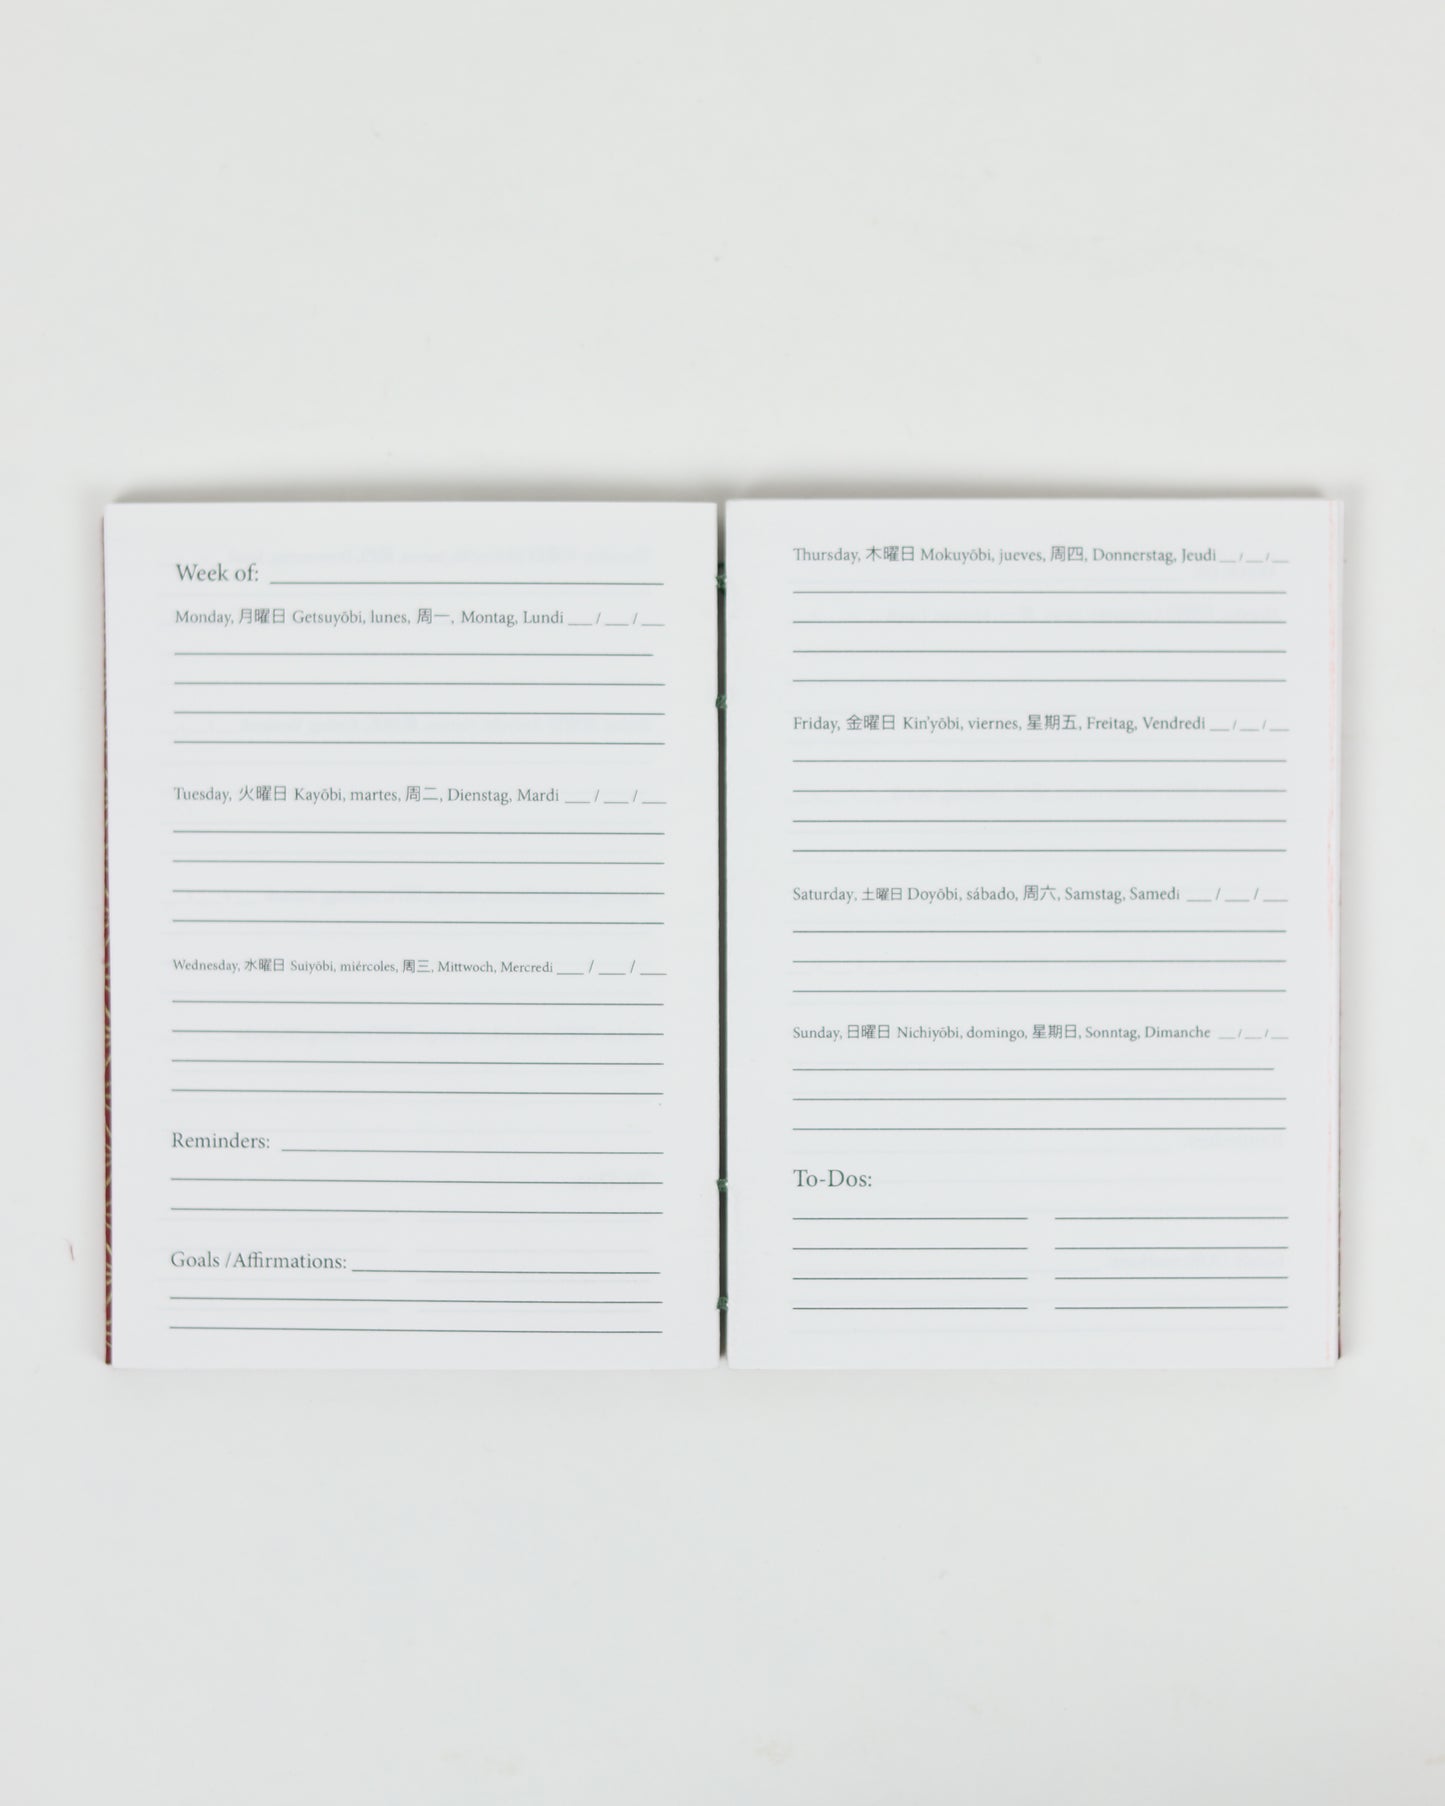 Week of:
Monday, 月曜日 Getsuyōbi, lunes, 周一, Montag, Lundi __ / __ / __
Tuesday, 火曜日 Kayōbi, martes, 周二, Dienstag, Mardi __ / __ / __
Wednesday, 水曜日 Suiyōbi, miércoles, 周三, Mittwoch, Mercredi __ / __ / __
Reminders:
Goals /Affirmations:
Thursday, 木曜日 Mokuyōbi, jueves, 周四, Donnerstag, Jeudi __ / __ / __
Friday, 金曜日 Kin'yōbi, viernes, 星期五, Freitag, Vendredi __ / __ / __
Saturday, 土曜日 Doyōbi, sábado, 周六, Samstag, Samedi __ / __ / __
Sunday, 日曜日 Nichiyōbi, domingo, 星期日, Sonntag, Dimanche __ / __ / __
To-Dos: